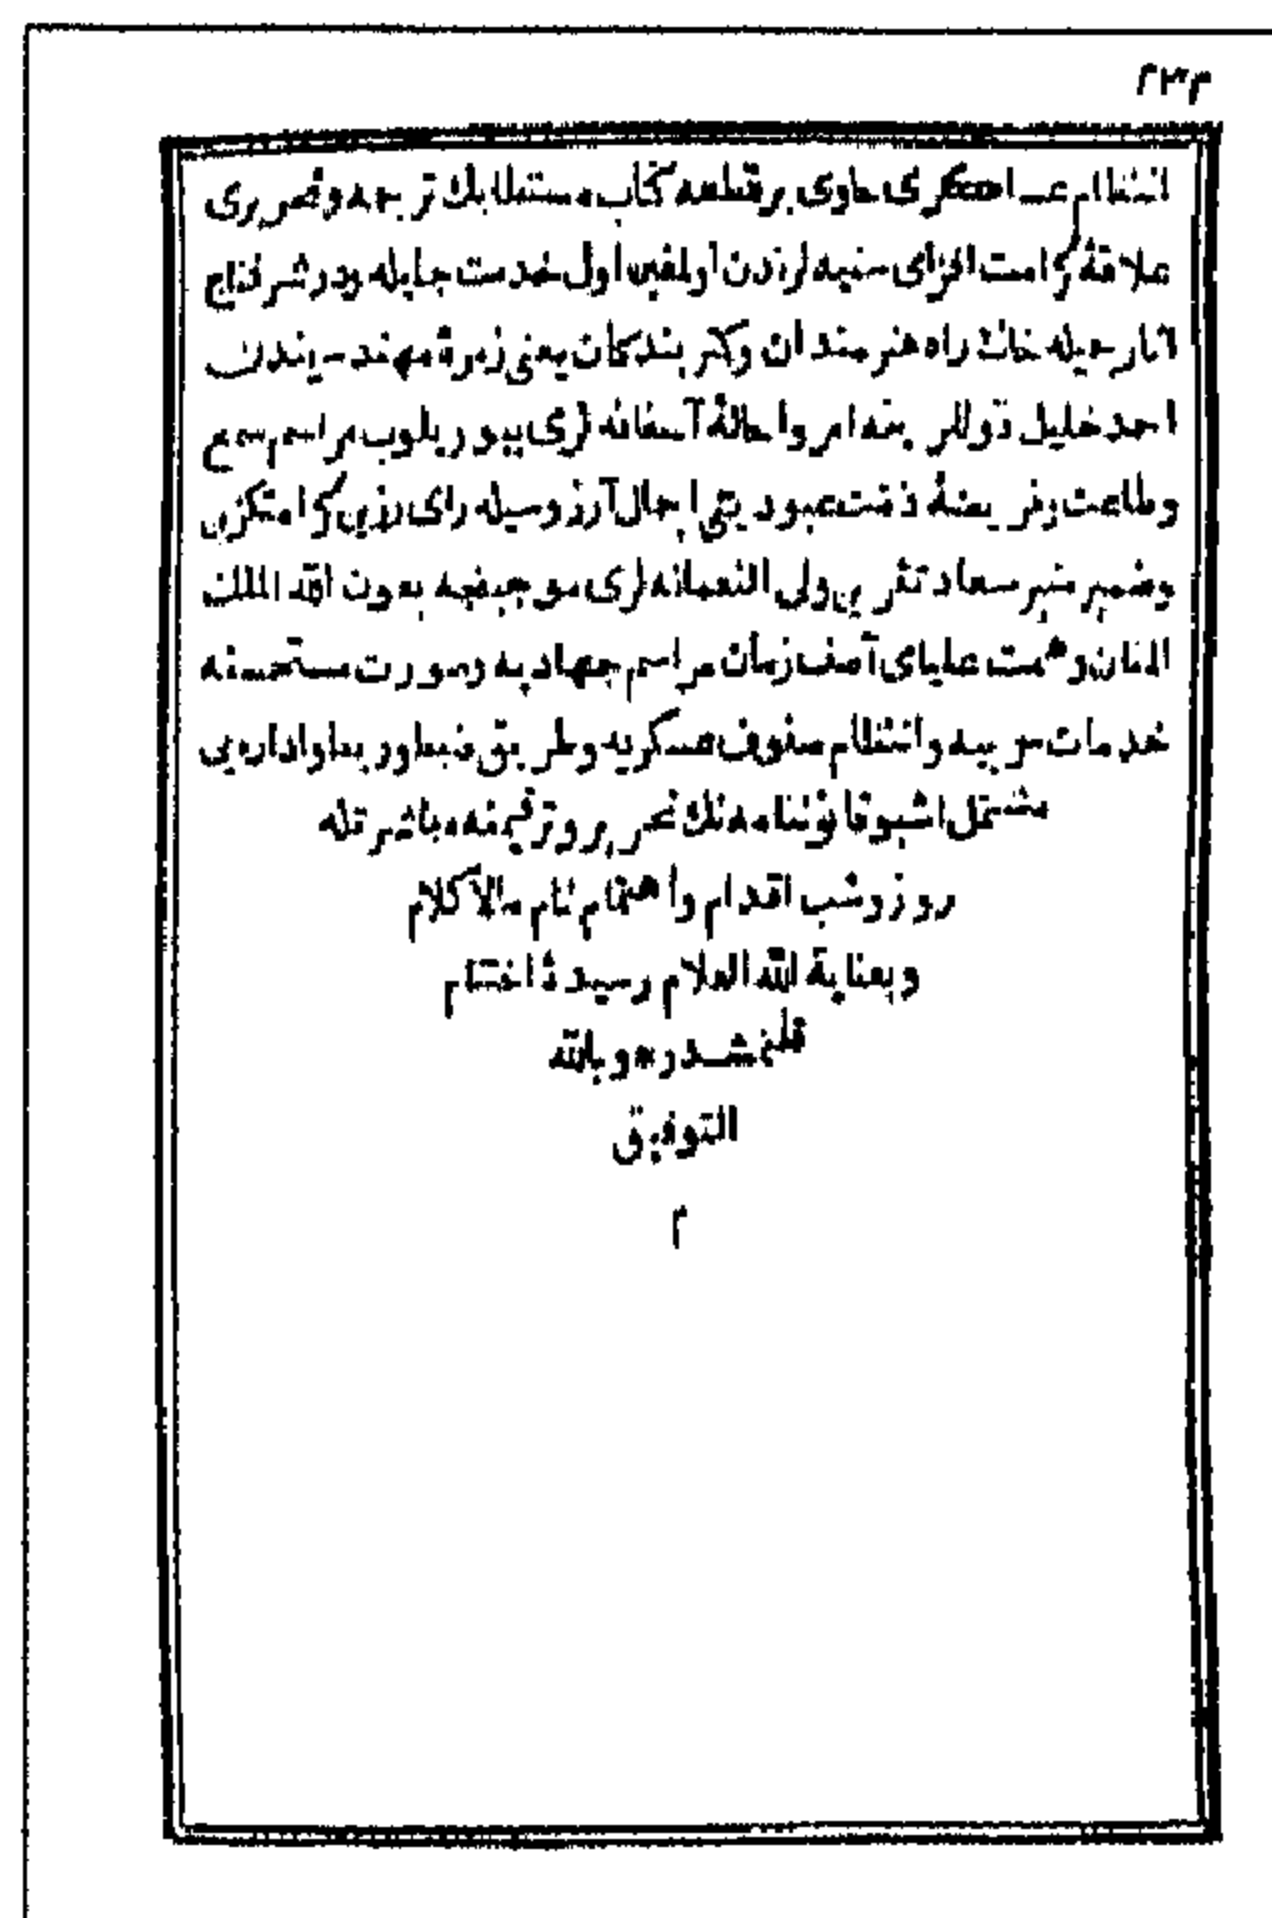 ٢٣٢
انتظام عساكرى حاوى بر قطعه كتاب مستطابك ترجمه وتحريرى
علاقهٔ كرامت افزاى سنيه لرندن اولمغين اول خدمت جليله ودر شرفتاج
آثار جميله خاك راه هنرمندان وكمتر بندكان يعنى زمرهٔ مهندسيندن
احمد خليل قوللرينه امر واحالهٔ آصفانه لرى بيوريلوب مراسم سمع
وطاعت وفريضهٔ ذمت عبوديتى ايجال آرزوسيله راى رزين كرامتكزين
وضمير منير سعادتقرين ولى النعمانه لرى موجبنجه بعون الله الملك
المنان وهمت علياى آصف زمان مراسم جهاديه وصورت مستحسنه
خدمات حربيه وانتظام صفوف عسكريه وطريق ضبط وربط واداره يى
مشتمل اشبو قانوننامه نك تحرير وترقيمنه مباشرتله
روز وشب اقدام واهتمام تام مالاكلام
وبعناية الله العلام رسيدهٔ اختتام
قلنمشدر * وبالله
التوفيق
م